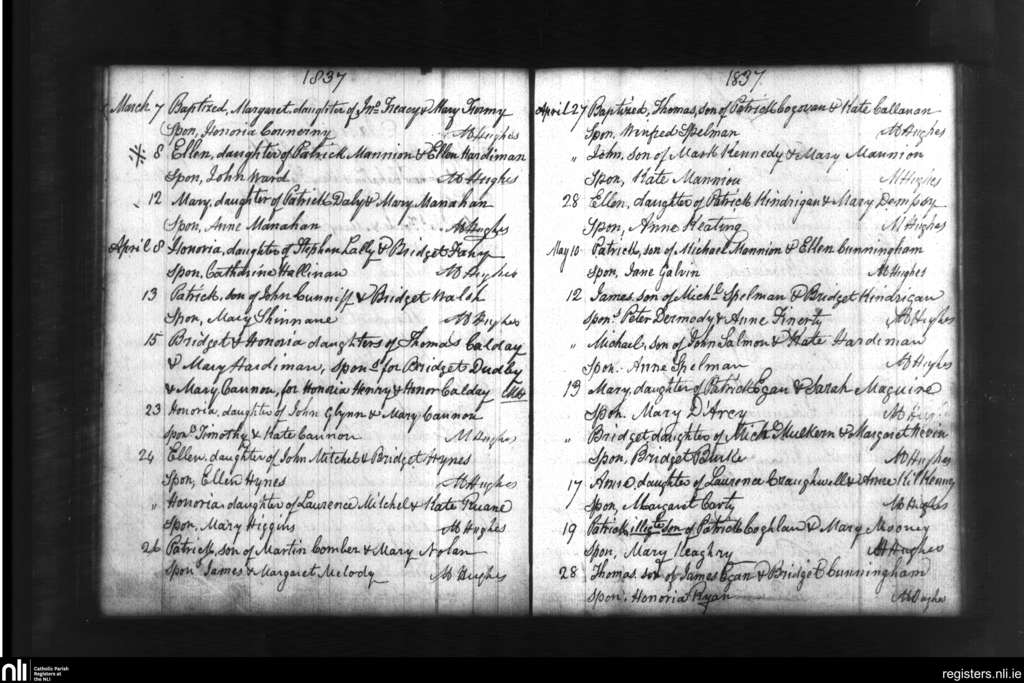 1837
March 7 Baptized, Margaret, daughter of Jno. Treacy & Mary
Spon, Honoria MHughes
8 Ellen, daughter of Patrick Mannion & Ellen Hardiman
Spon, John Ward MHughes
12 Mary, daughter of Patrick Daly & Mary Manahan
Spon, Anne Manahan MHughes
April 8 Honoria, daughter of Stephen Lally & Bridget Fahy
Spon, Catherine Hallinan MHughes
13 Patrick, son of John Cunniff & Bridget Walsh
Spon, Mary Shinnane MHughes
15 Bridget & Honoria daughters of Thomas Calday
& Mary Hardiman, Spons for Bridget Dudley
& Mary Cannon, for Honoria Henry & Honor Calday
23 Honoria, daughter of John Glynn & Mary Cannon
Spons Timothy & Kate Cannon MHughes
24 Ellen, daughter of John Mitchel & Bridget Hynes
Spon, Ellen Hynes MHughes
" Honoria daughter of Laurence Mitchel & Kate Ruane
Spon, Mary Higgins MHughes
26 Patrick, son of Martin Comber & Mary Nolan
Spons James & Margaret Melody MHughes
1837
April 27 Baptized, Thomas, son of Patrick Cogavan & Kate Callanan
Spon, Winifred Spelman MHughes
" John, son of Mark Kennedy & Mary Mannion
Spon, Kate Mannion MHughes
28 Ellen, daughter of Patrick Hindrigan & Mary Dempsy
Spon, Anne Keating MHughes
May 10 Patrick, son of Michael Mannion & Ellen Cunningham
Spon, Jane Galvin MHughes
12 James, son of Michl Spelman & Bridget Hindrigan
Spons Peter Dermody & Anne Finerty MHughes
" Michael, son of John Salmon & Kate Hardiman
Spon. Anne Spelman MHughes
13 Mary, daughter of Patrick Egan & Sarah Maguire
Spon. Mary D'Arcy MHughes
" Bridget daughter of Michl Mulkern & Margaret Nevin
Spon, Bridget Burke MHughes
17 Anne, daughter of Laurence Craughwell & Anne Kilkenny
Spon, Margaret Carty MHughes
19 Patrick, illigte son of Patrick Coghlan & Mary Mooney
Spon, Mary Heaghry MHughes
28 Thomas, son of James Egan & Bridget Cunningham
Spon. Honoria Ryan MHughes
nli Catholic Parish
Registers at
the NLI
registers.nli.ie